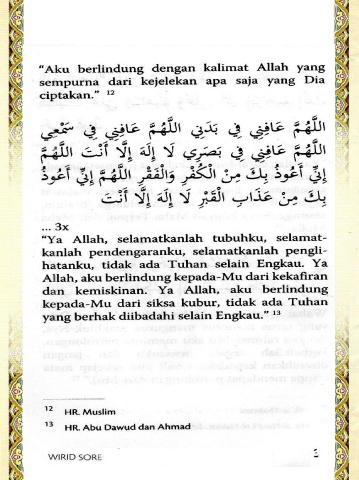 “Aku berlindung dengan kalimat Allah yang
sempurna dari kejelekan apa saja yang Dia
ciptakan.” 12
اللَّهُمَّ عَافِنِي فِي بَدَنِي اللَّهُمَّ عَافِنِي فِي سَمْعِي
اللَّهُمَّ عَافِنِي فِي بَصَرِي لَا إِلَهَ إِلَّا أَنْتَ اللَّهُمَّ
إِنِّي أَعُوذُ بِكَ مِنْ الْكُفْرِ وَالْفَقْرِ اللَّهُمَّ إِنِّي أَعُوذُ
بِكَ مِنْ عَذَابِ الْقَبْرِ لَا إِلَهَ إِلَّا أَنْتَ
... 3x
“Ya Allah, selamatkanlah tubuhku, selamat-
kanlah pendengaranku, selamatkanlah pengli-
hatanku, tidak ada Tuhan selain Engkau. Ya
Allah, aku berlindung kepada-Mu dari kekafiran
dan kemiskinan. Ya Allah, aku berlindung
kepada-Mu dari siksa kubur, tidak ada Tuhan
yang berhak diibadahi selain Engkau.” 13
12 HR. Muslim
13 HR. Abu Dawud dan Ahmad
WIRID SORE